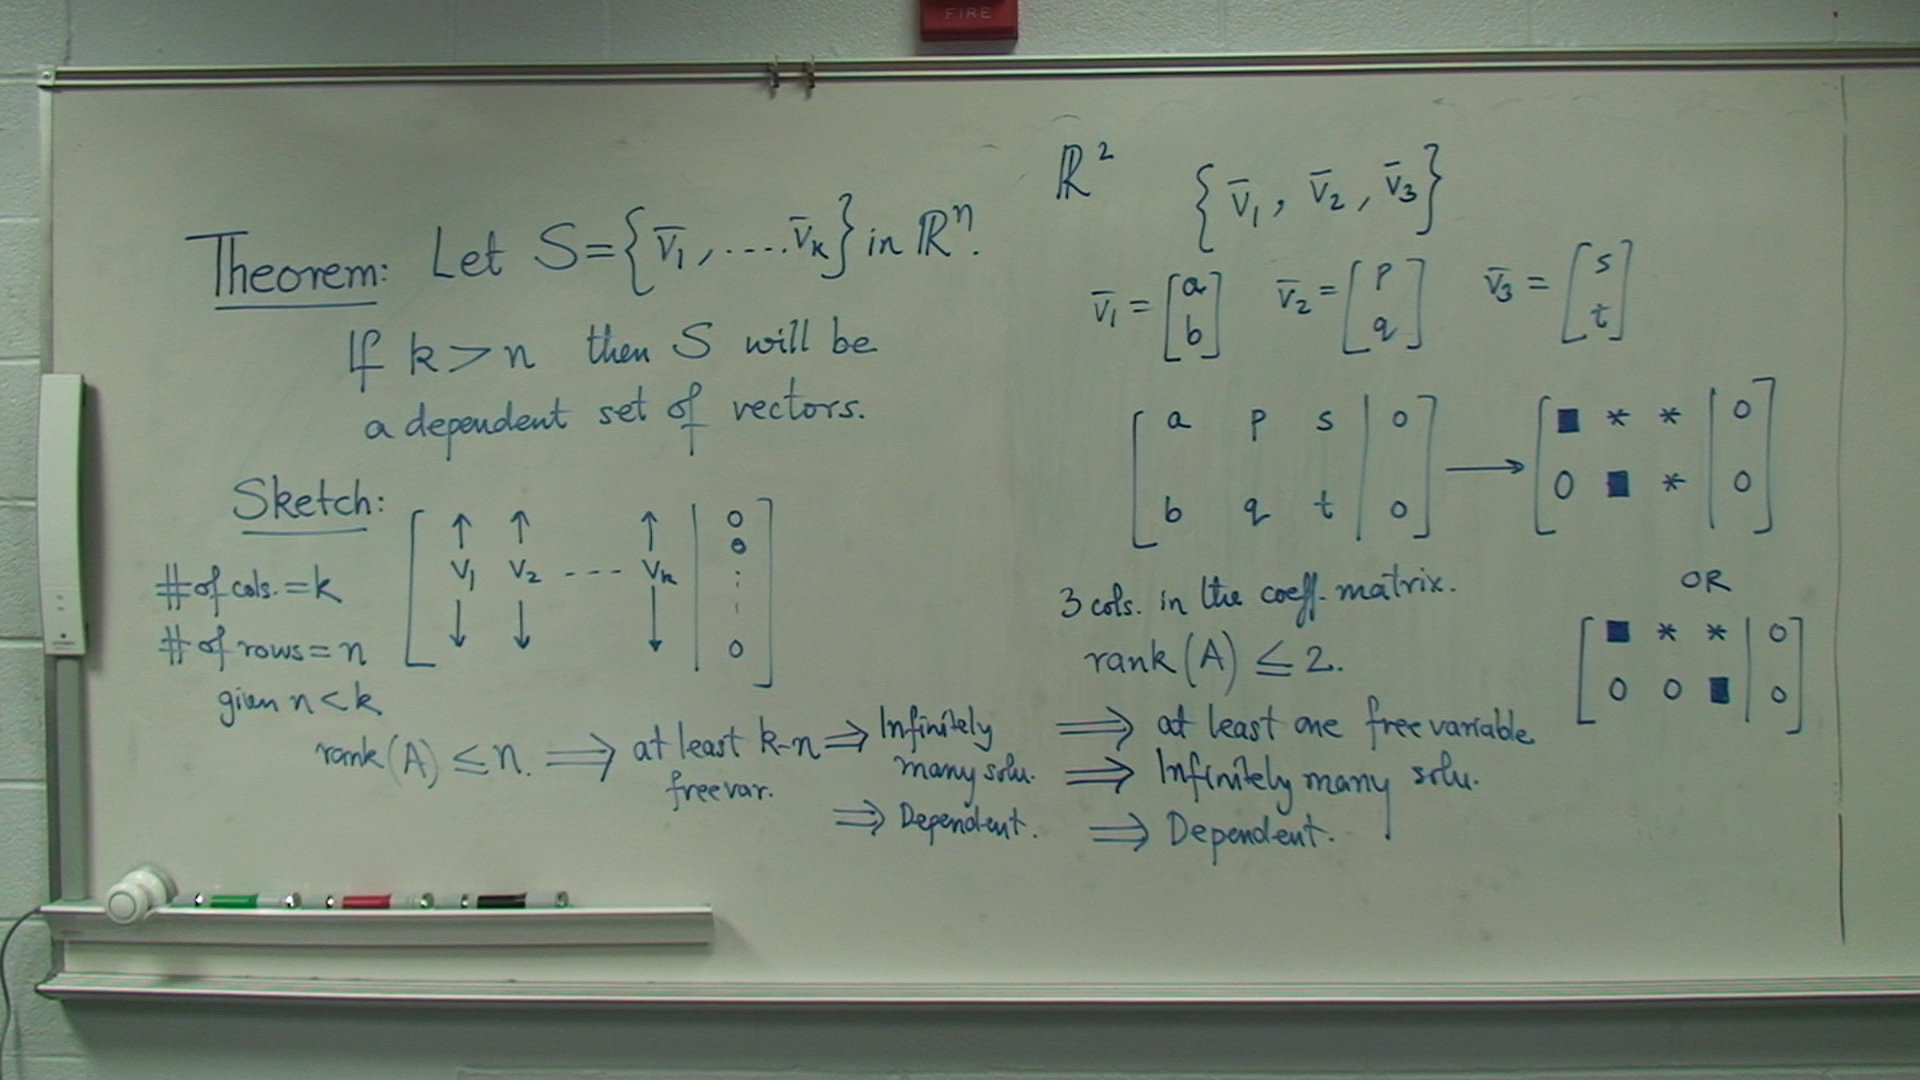 FIRE
Theorem: Let S={v̄₁, ....v̄ₖ} in ℝⁿ.
If k>n then S will be
a dependent set of vectors.
Sketch:
# of cols. = k
# of rows = n
given n<k
[ ↑ ↑ ↑ | 0
v₁ v₂ --- vₖ | 0
⋮
↓ ↓ ↓ | 0 ]
rank(A) ≤ n. ⟹ at least k-n ⟹ Infinitely
free var. many solu.
⟹ Dependent.
ℝ² {v̄₁, v̄₂, v̄₃}
v̄₁ = [a b] v̄₂ = [p q] v̄₃ = [s t]
[ a p s | 0 ⟶ [ ■ * * | 0
b q t | 0 ] 0 ■ * | 0 ]
OR
[ ■ * * | 0
0 0 ■ | 0 ]
3 cols. in the coeff. matrix.
rank(A) ≤ 2.
⟹ at least one free variable
⟹ Infinitely many solu.
⟹ Dependent.